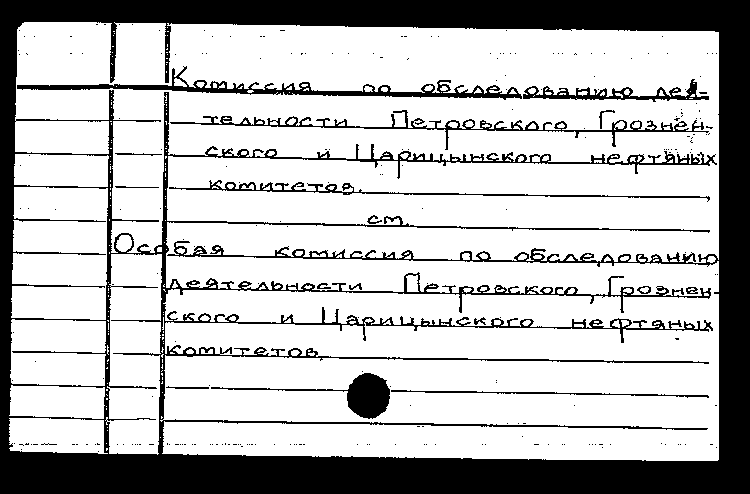 Комиссия по обследованию дея-
тельности Петровского, Грознен-
ского и Царицынского нефтяных
комитетов.
см.
Особая комиссия по обследованию
деятельности Петровского, Грознен-
ского и Царицынского нефтяных
комитетов.